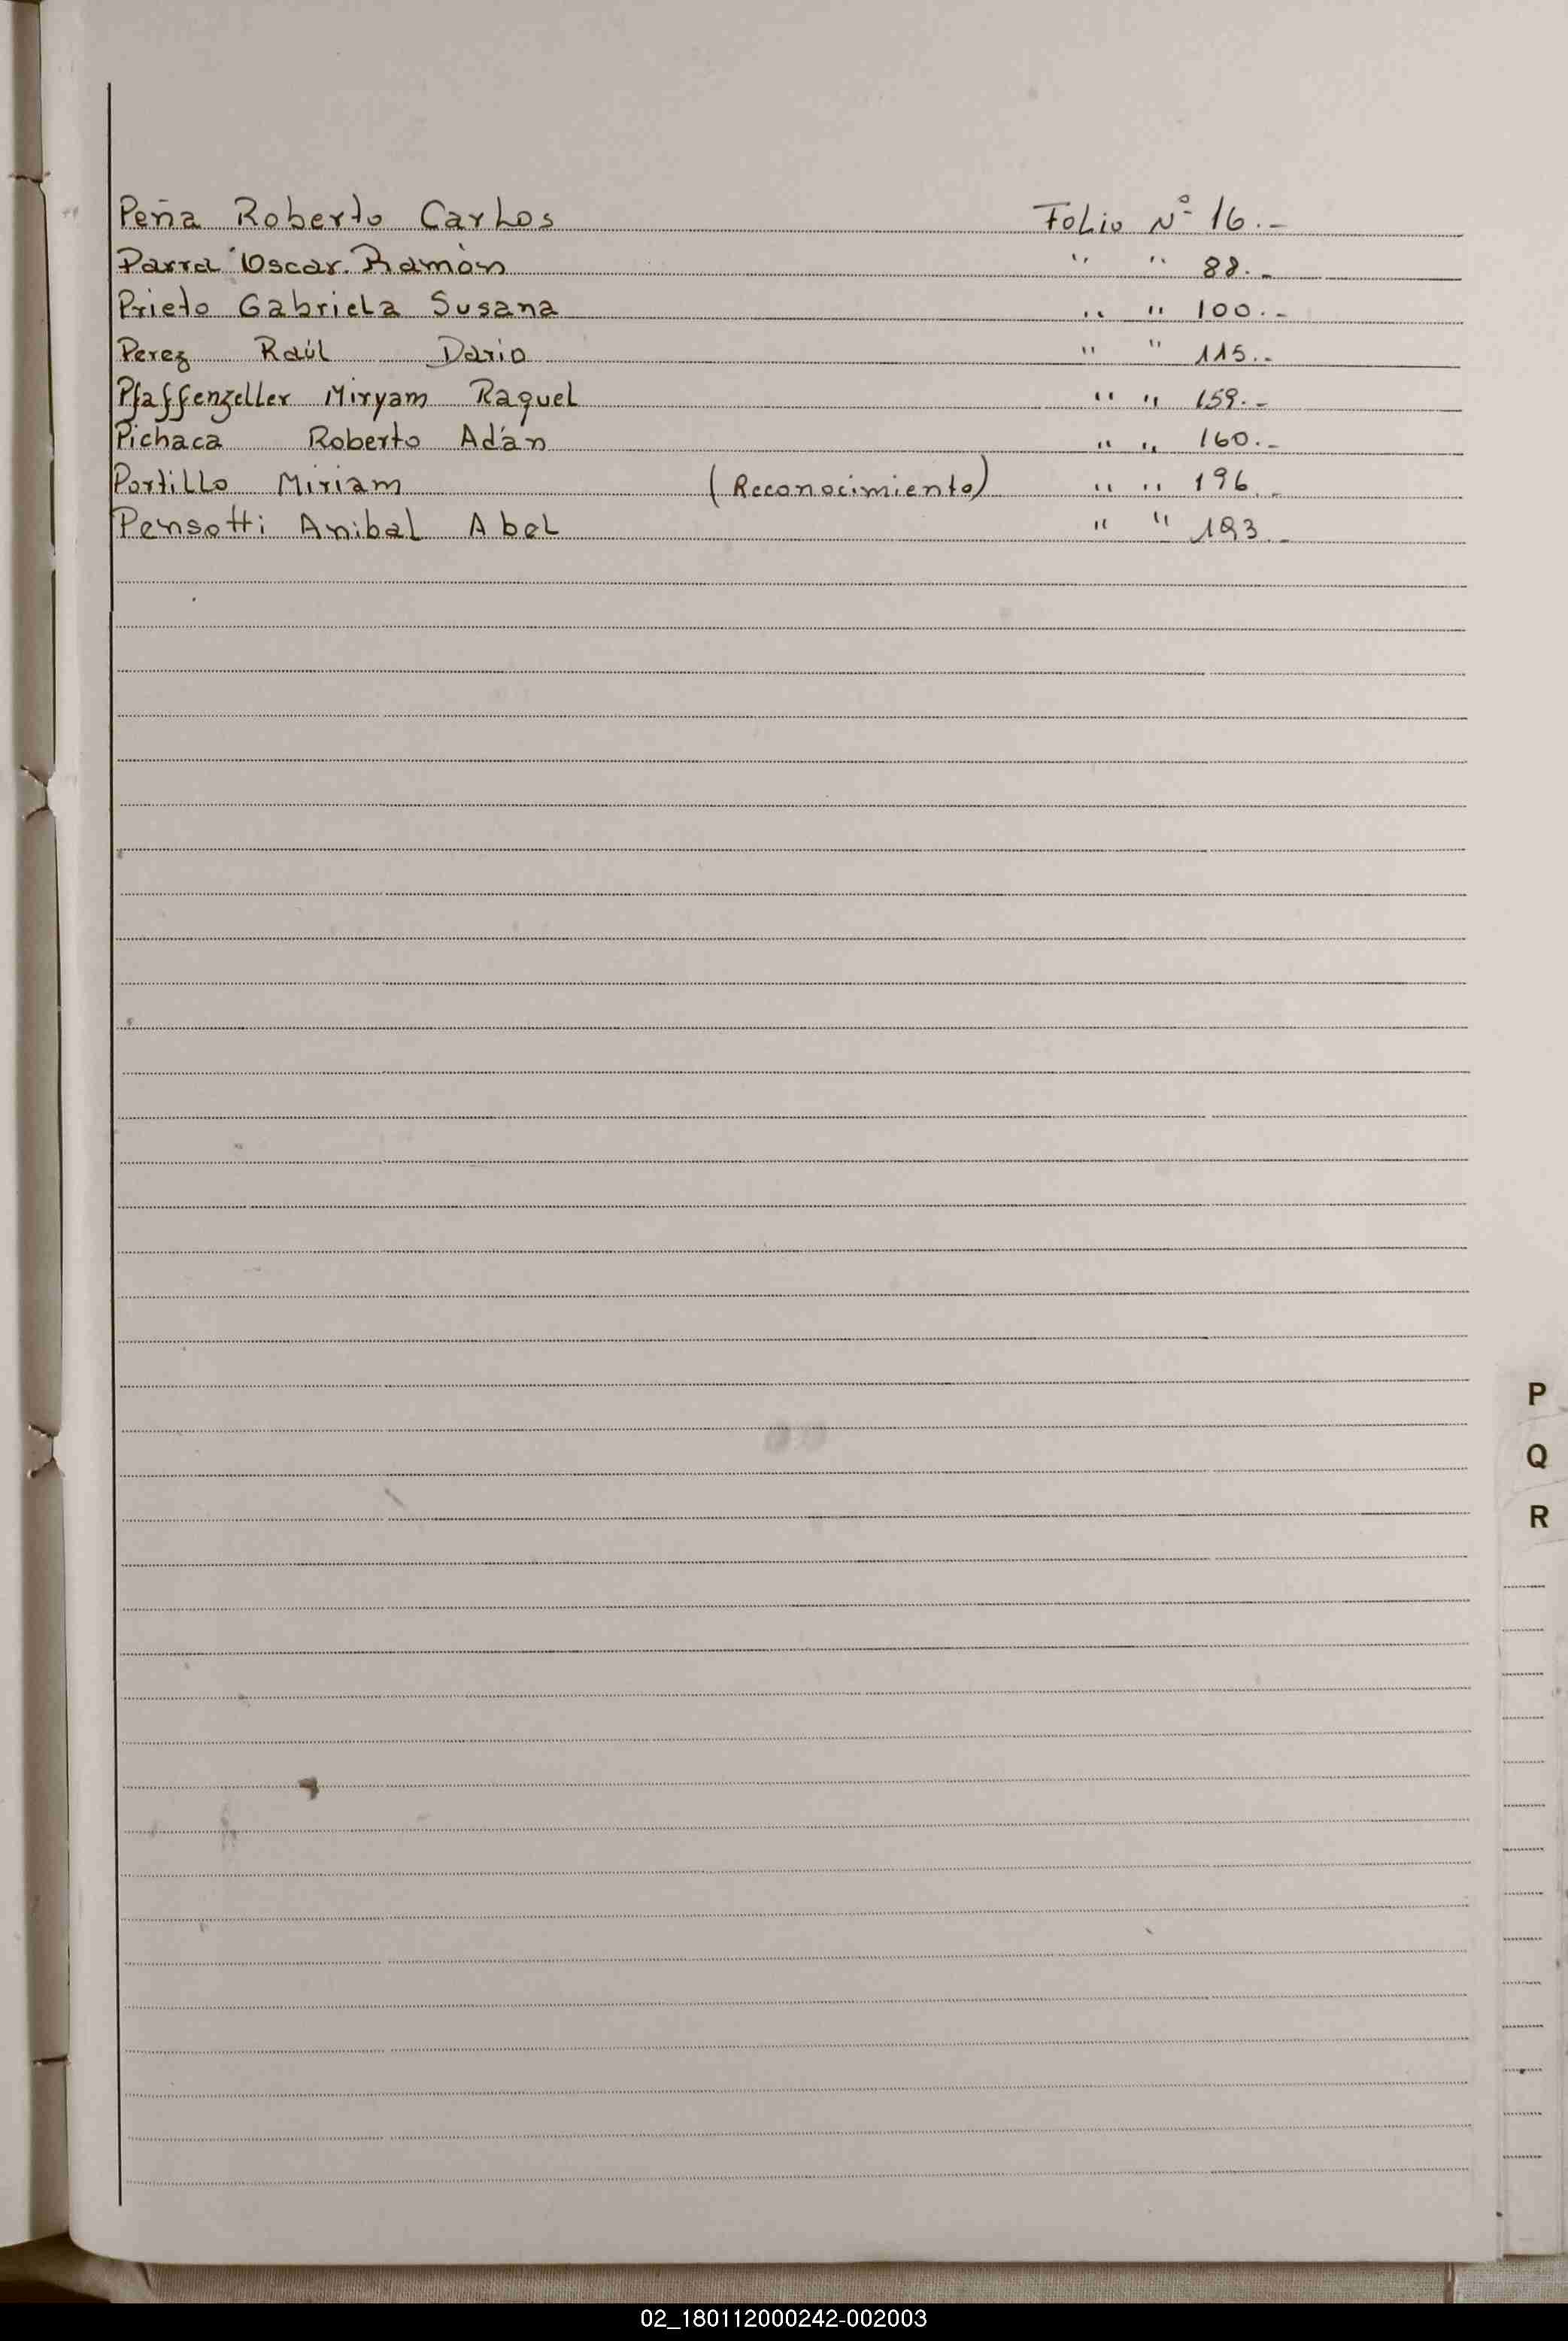 Peña Roberto Carlos Folio Nº 16.-
Parra Oscar Ramón " " 88.-
Prieto Gabriela Susana " " 100.-
Perez Raúl Dario " " 115.-
Pfaffenzeller Miryam Raquel " " 159.-
Pichaca Roberto Adán " " 160.-
Portillo Miriam (Reconocimiento) " " 196.-
Pensotti Anibal Abel " " 193.-
P
Q
R
02_180112000242-002003